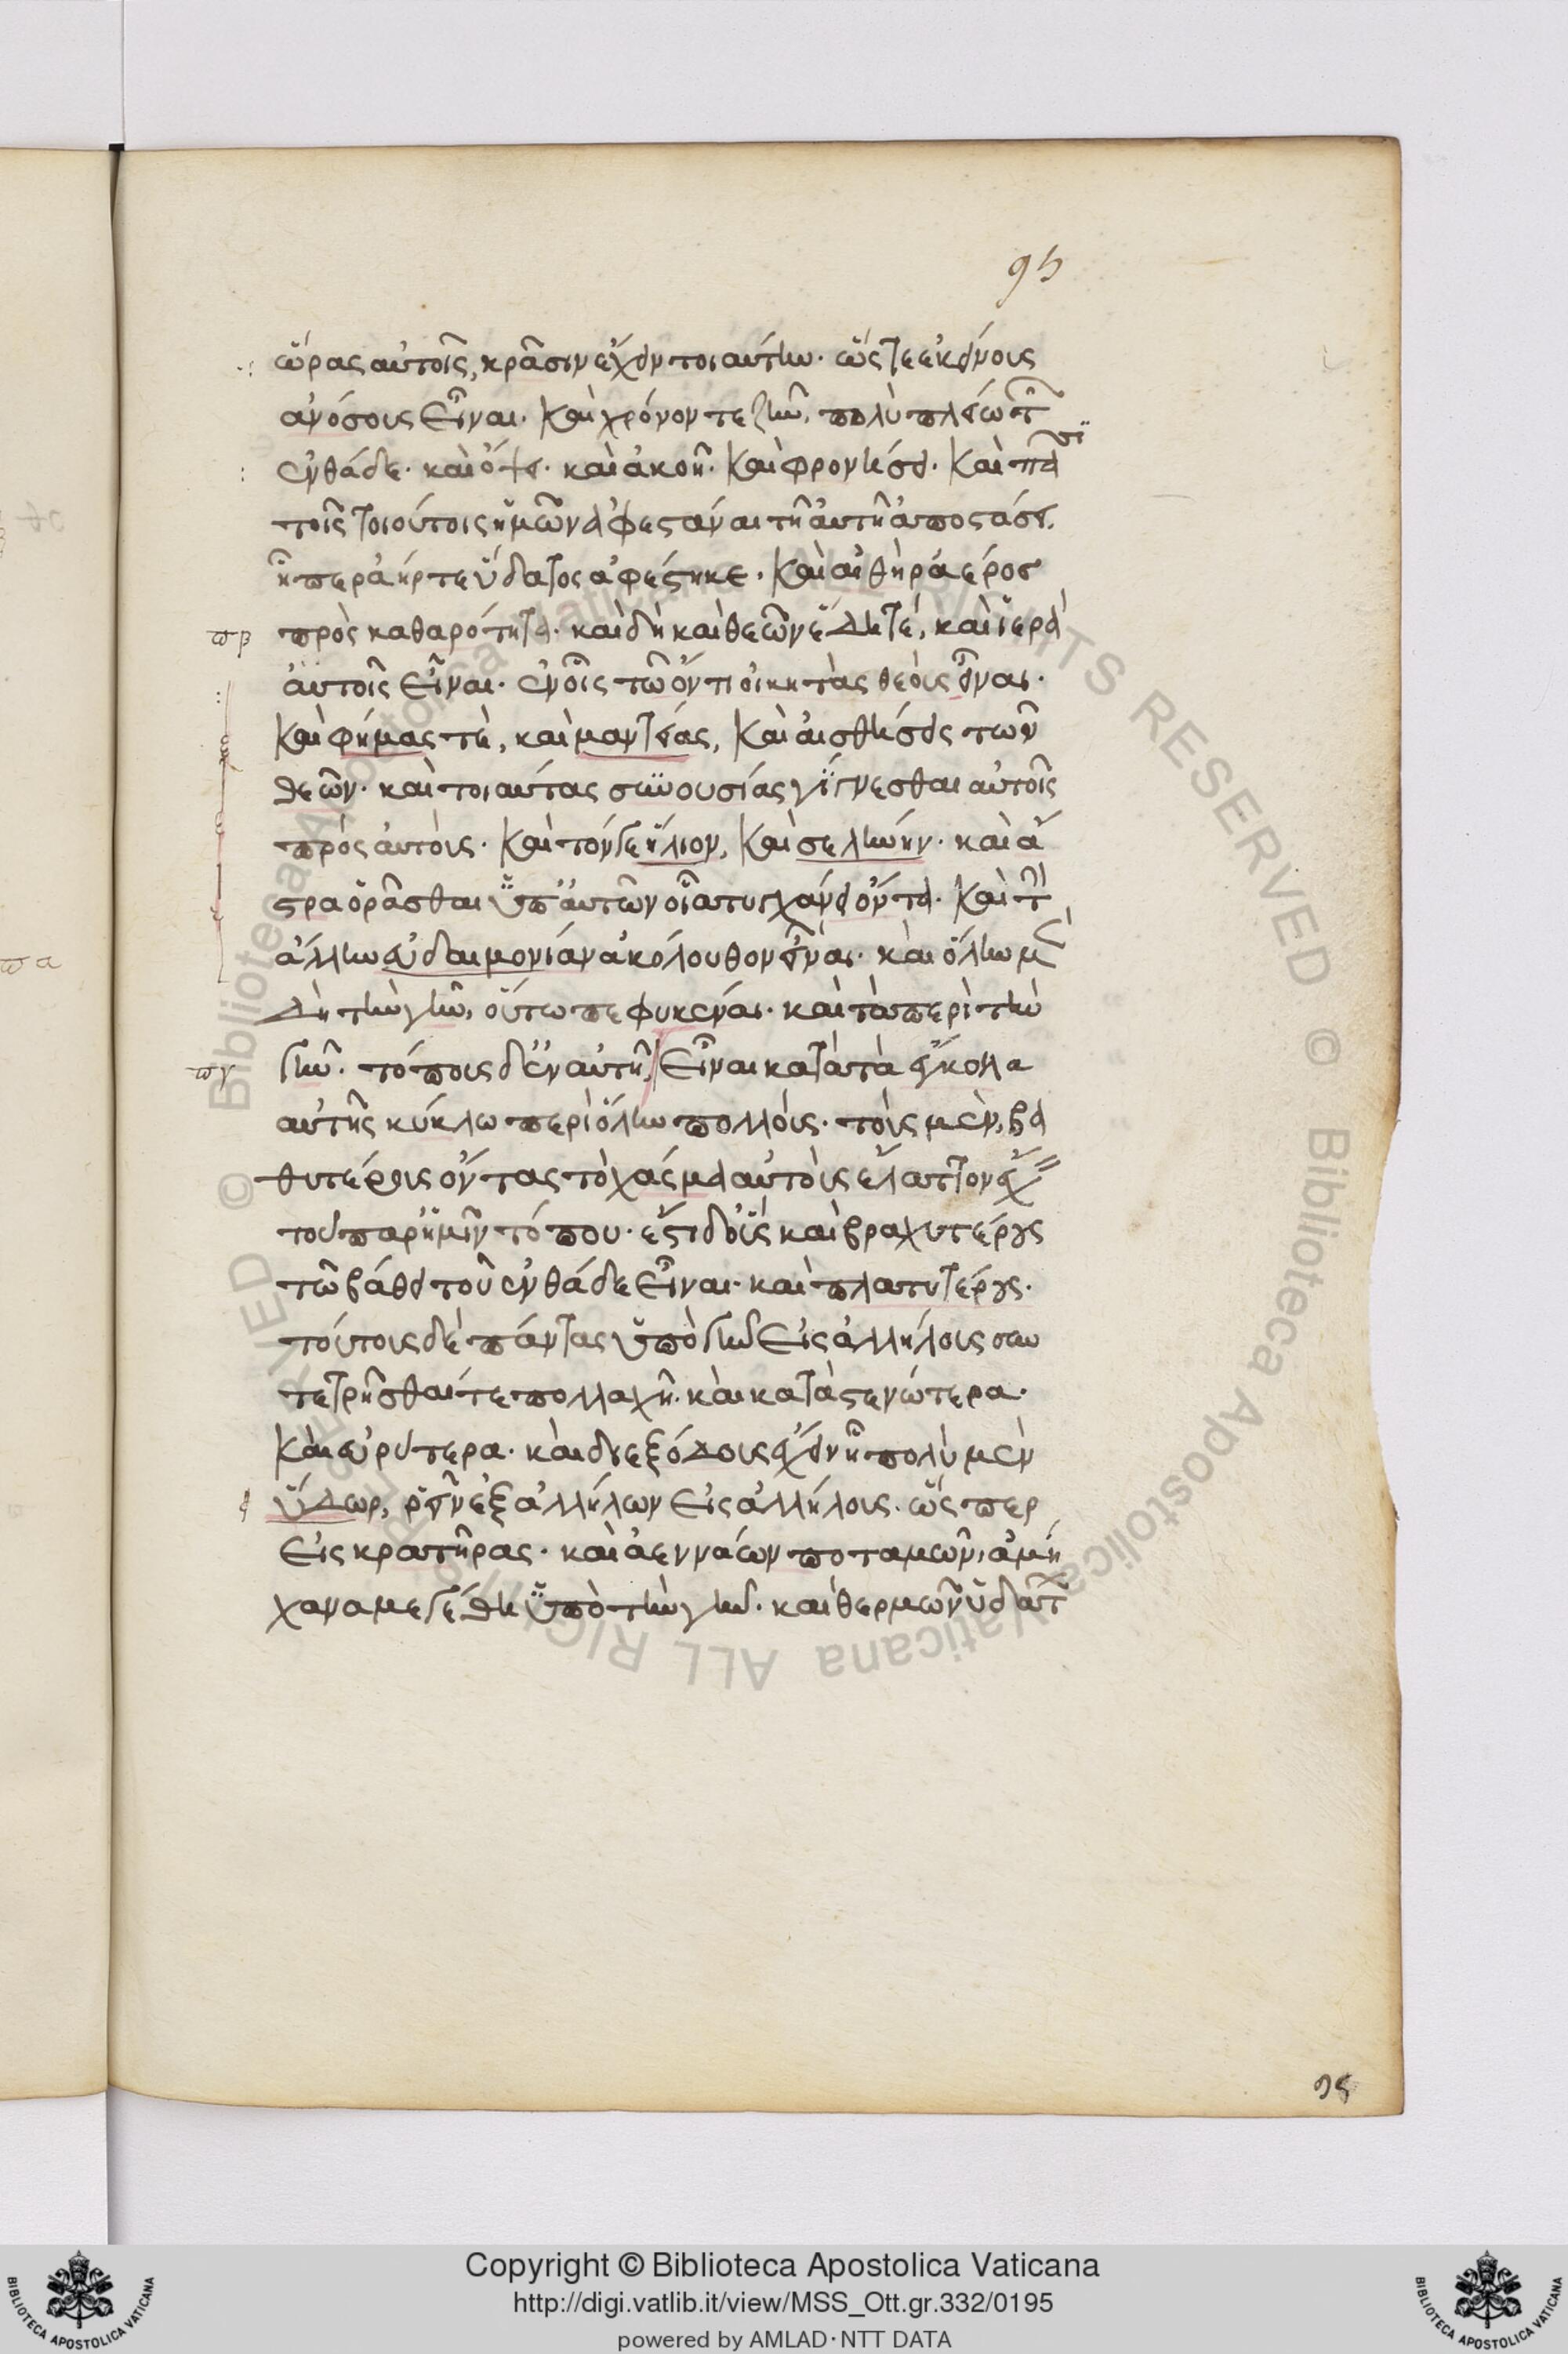 95
ὥρας αὐτοῖς, κρᾶσιν ἔχειν τοιαύτην. ὥστε ἐκείνους
ἀνόσους εἶναι. καὶ χρόνον τε ζῆν, πολὺ πλείω τῶν
ἐνθάδε. καὶ ὄψει. καὶ ἀκοῇ. καὶ φρονήσει. καὶ πᾶσι
τοῖς τοιούτοις ἡμῶν ἀφεστάναι τῇ αὐτῇ ἀποστάσει.
ᾗπερ ἀήρ τε ὕδατος ἀφέστηκε. καὶ αἰθὴρ ἀέρος
πβ πρὸς καθαρότητα. καὶ δὴ καὶ θεῶν ἕδη τε, καὶ ἱερὰ
αὐτοῖς εἶναι. ἐν οἷς τῷ ὄντι οἰκητὰς θεοὺς εἶναι.
καὶ φήμας τε, καὶ μαντείας, καὶ αἰσθήσεις τῶν
θεῶν. καὶ τοιαύτας συνουσίας γίγνεσθαι αὐτοῖς
πρὸς αὐτούς. καὶ τόν γε ἥλιον, καὶ σελήνην. καὶ ἄ
στρα ὁρᾶσθαι ὑπ' αὐτῶν οἷα τυγχάνει ὄντα. καὶ τὴν
ἄλλην εὐδαιμονίαν ἀκόλουθον εἶναι. καὶ ὅλην μὲν
δὴ τὴν γῆν, οὕτω πεφυκέναι. καὶ τὰ περὶ τὴν
πγ γῆν. τόπους δ' ἐν αὐτῇ, εἶναι κατὰ τὰ ἔγκοιλα
αὐτῆς κύκλῳ περὶ ὅλην πολλούς. τοὺς μὲν, βα
θυτέρους ὄντας τὸ χάσμα αὐτοὺς ἔλαττον ἔχειν
τοῦ παρ' ἡμῖν τόπου. ἔστι δ' οὓς καὶ βραχυτέρους
τῷ βάθει τοῦ ἐνθάδε εἶναι. καὶ πλατυτέρους.
τούτους δὲ πάντας ὑπὸ γῆν εἰς ἀλλήλους συν
τετρῆσθαί τε πολλαχῇ. καὶ κατὰ στενώτερα.
καὶ εὐρύτερα. καὶ διεξόδους ἔχειν ᾗ πολὺ μὲν
ὕδωρ, ῥεῖν ἐξ ἀλλήλων εἰς ἀλλήλους. ὥσπερ
εἰς κρατῆρας. καὶ ἀεννάων ποταμῶν, ἀμή
χανα μεγέθη ὑπὸ τὴν γῆν. καὶ θερμῶν ὑδάτων
95
πα
Copyright © Biblioteca Apostolica Vaticana
http://digi.vatlib.it/view/MSS_Ott.gr.332/0195
powered by AMLAD·NTT DATA